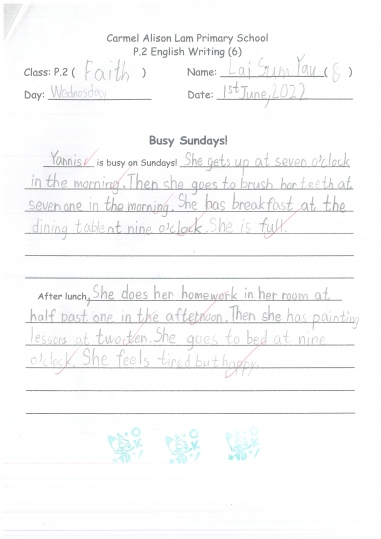 Carmel Alison Lam Primary School
P.2 English Writing (6)
Class: P.2 ( Faith ) Name: Lai Sum Yau ( 8 )
Day: Wednesday Date: 1st June, 2022
Busy Sundays!
Yannis is busy on Sundays! She gets up at seven o'clock
in the morning. Then she goes to brush her teeth at
seven one in the morning. She has breakfast at the
dining table at nine o'clock. She is full.
After lunch, She does her homework in her room at
half past one in the afternoon. Then she has painting
lessons at two ten. She goes to bed at nine
o'clock. She feels tired but happy.